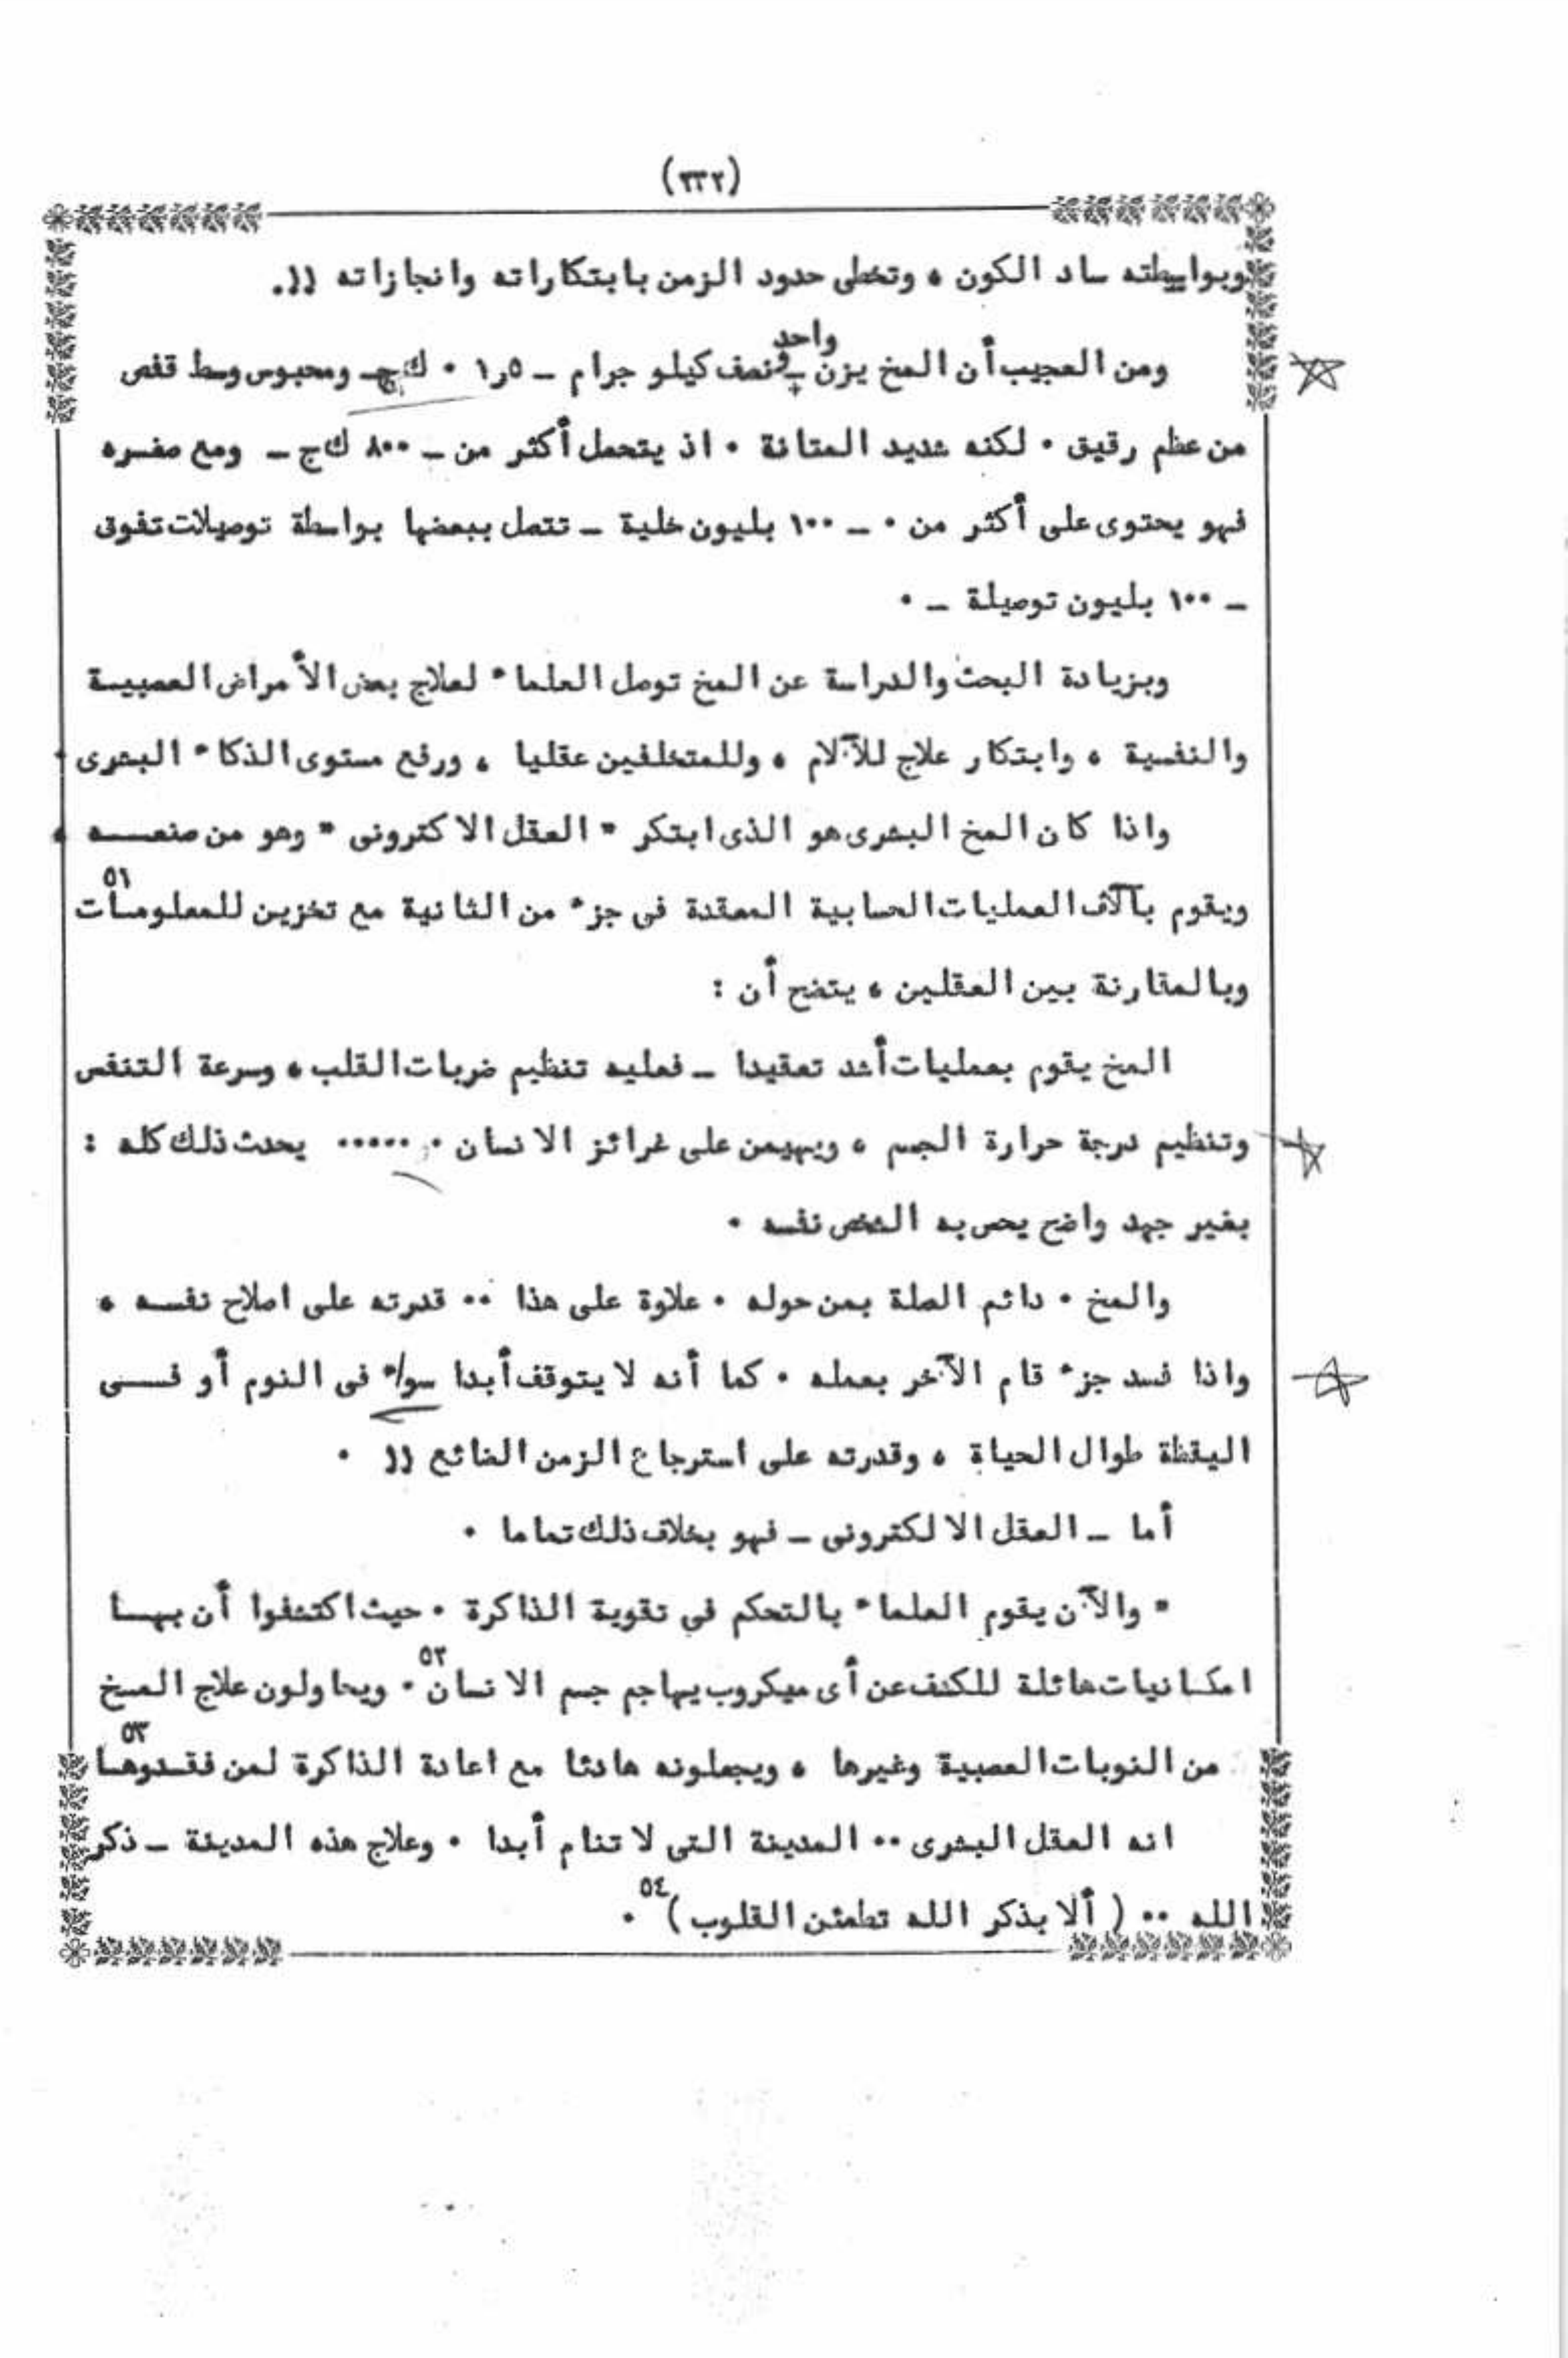 (٣٣٢)
وبواسطته ساد الكون ، وتخطى حدود الزمن بابتكاراته وانجازاته !! .
واحد
ومن العجيب أن المخ يزن – ونصف كيلو جرام – ١٫٥ ٠ ك ج – ومحبوس وسط قفص
من عظم رقيق ٠ لكنه شديد المتانة ٠ اذ يتحمل أكثر من – ٨٠٠ ك ج – ومع صغره
فهو يحتوى على أكثر من ٠ – ١٠٠ بليون خلية – تتصل ببعضها بواسطة توصيلات تفوق
– ١٠٠ بليون توصيلة – ٠
وبزيادة البحث والدراسة عن المخ توصل العلماء لعلاج بعض الأمراض العصبيـة
والنفسية ، وابتكار علاج للآلام ، وللمتخلفين عقليا ، ورفع مستوى الذكاء البشرى ٠
واذا كان المخ البشرى هو الذى ابتكر " العقل الاكترونى " وهو من صنعـــه ،
ويقوم بآلاف العمليات الحسابية المعقدة فى جزء من الثانية مع تخزين للمعلومـات ٥١
وبالمقارنة بين العقلين ، يتضح أن :
المخ يقوم بعمليات أشد تعقيدا – فعليه تنظيم ضربات القلب ، وسرعة التنفس
وتنظيم درجة حرارة الجسم ، ويهيمن على غرائز الانسان ٠ ٠٠٠٠٠ يحدث ذلك كله :
بغير جهد واضح يحس به الشخص نفسه ٠
والمخ ٠ دائم الصلة بمن حوله ٠ علاوة على هذا ٠٠ قدرته على اصلاح نفســه ،
واذا فسد جزء قام الآخر بعمله ٠ كما أنه لا يتوقف أبدا سواء فى النوم أو فــــى
اليقظة طوال الحياة ، وقدرته على استرجاع الزمن الضائع !! ٠
أما – العقل الالكترونى – فهو بخلاف ذلك تماما ٠
" والآن يقوم العلماء بالتحكم فى تقوية الذاكرة ٠ حيث اكتشفوا أن بهــا
امكـانيات هائلة للكشف عن أى ميكروب يهاجم جسم الانسان ٥٢ ٠ ويحاولون علاج المـخ
من النوبات العصبية وغيرها ، ويجعلونه هادئا مع اعادة الذاكرة لمن فقـدوهـا ٥٣
انه العقل البشرى ٠٠ المدينة التى لا تنام أبدا ٠ وعلاج هذه المدينة – ذكر
الله ٠٠ ( ألا بذكر الله تطمئن القلوب ) ٥٤ ٠